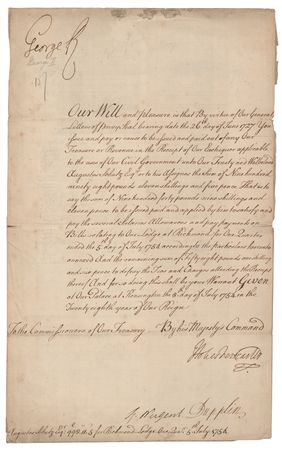 George R
Our Will and pleasure is that By virtue of Our General
Letters of privy Seal bearing date the 26th day of June 1727 You
Issue and pay or cause to be issued and paid out of any Our
Treasure or Revenue in the Receipt of Our Exchequer applicable
to the uses of Our Civil Government unto Our Trusty and Welbeloved
Augustus Schutz Esqr. or to his Assignes the sum of Nine hundred
ninety eight pounds eleven shillings and five pence That is to
say the sum of Nine hundred forty pounds nine shillings and
eleven pence to be by him paid and applied by him to satisfy and
pay the several Salaries Allowances and payments on
Bills relating to Our Lodge at Richmond for One Quarter
ended the 5th day of July 1754 according to the particulars hereunto
annexed And the remaining sum of Fifty eight pounds one shilling
and six pence to defray the Fees and Charges attending the Receipt
thereof And for so doing this shall be your Warrant Given
at Our Palace at Kensington the 8th day of July 1754 In the
Twenty eighth year of Our Reign
To the Commissioners of Our Treasury
By his Majestys Command
Dupplin
Augustus Schutz Esqr. 998.11.5 for Richmond Lodge One Qr. 5th July 1754